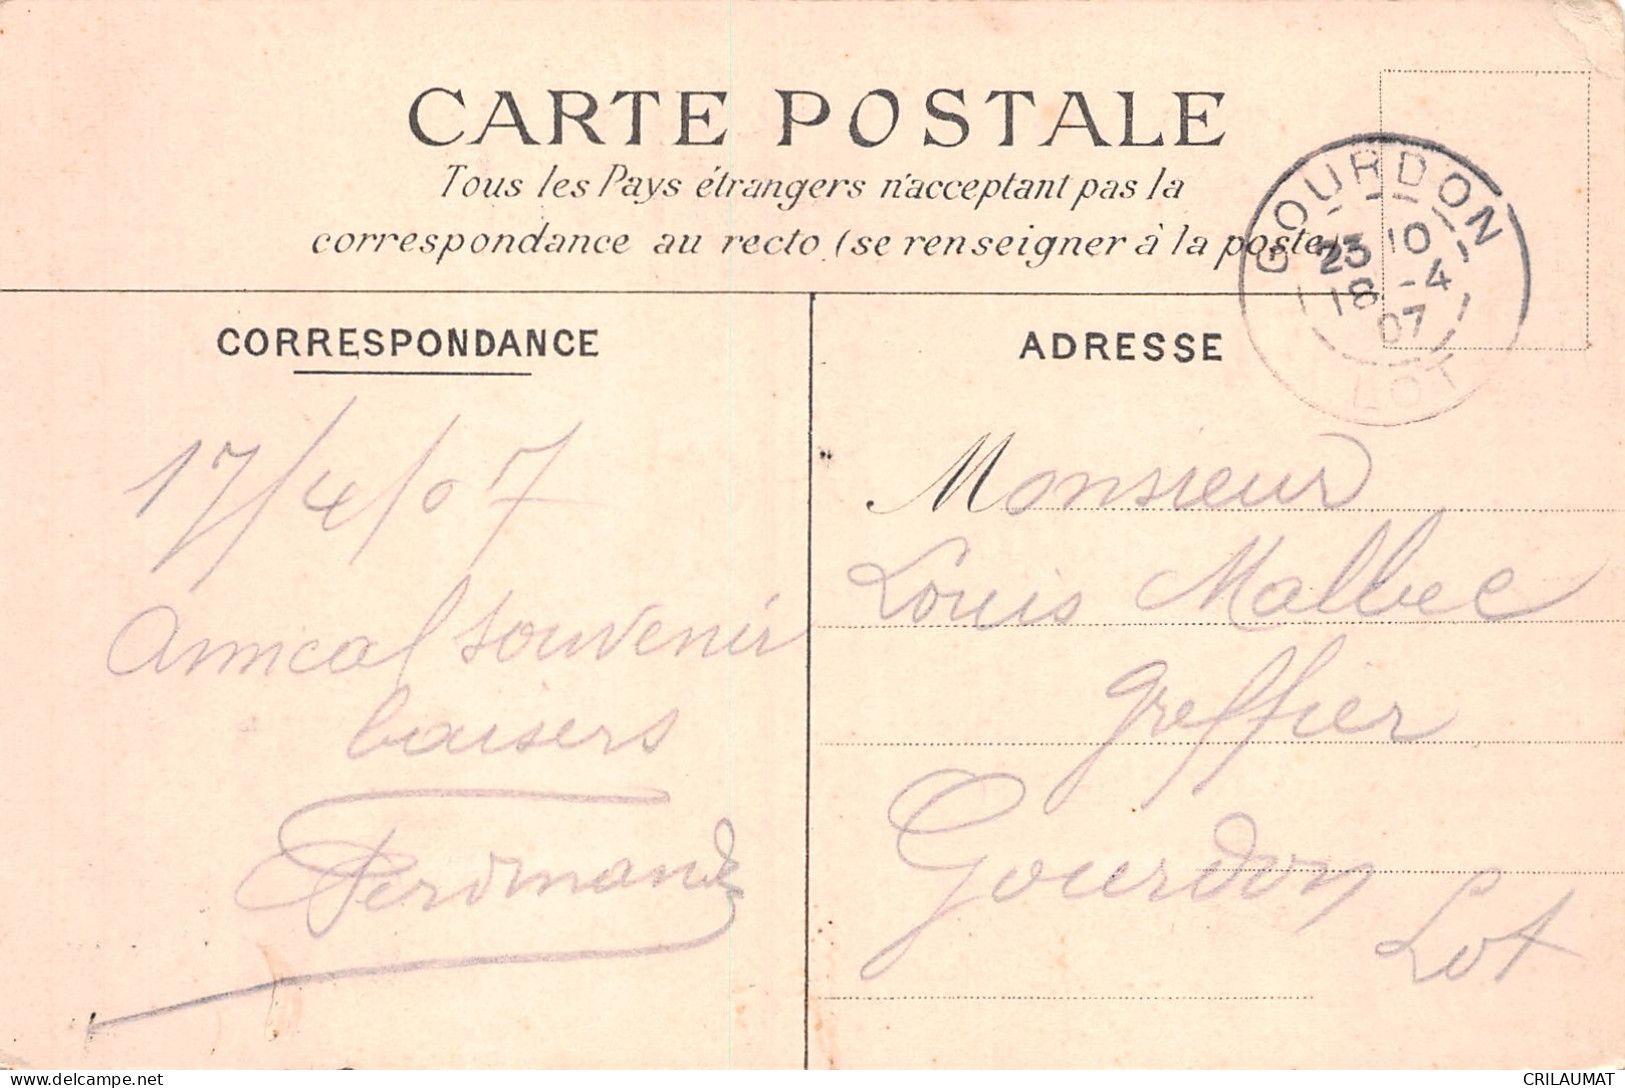 CARTE POSTALE
Tous les Pays étrangers n'acceptant pas la
correspondance au recto (se renseigner à la poste)
GOURDON
23 10
18 -4
07
LOT
CORRESPONDANCE
17/4/07
Amical souvenir
baisers
Ferdinand
ADRESSE
Monsieur
Louis Malbec
greffier
Gourdon
Lot
delcampe.net
CRILAUMAT